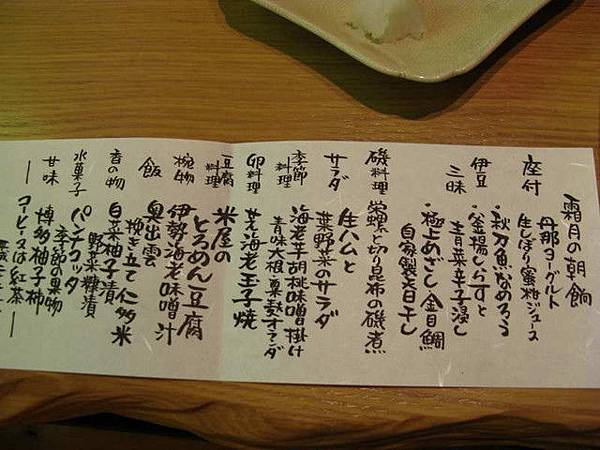 霜月の朝餉
座付
丹那ヨーグルト
生しぼり蜜柑ジュース
伊豆三昧
・秋刀魚なめろう
・釜揚しらすと
青菜辛子浸し
・極上めざし金目鯛
自家製旨干し
磯料理
栄螺と切り昆布の磯煮
サラダ
生ハムと
葉野菜のサラダ
季節料理
海老芋胡桃味噌掛け
青味大根
卵料理
芝海老玉子焼
豆腐料理
米屋の
とろめん豆腐
椀物
伊勢海老味噌汁
飯
奥出雲
挽き立て仁多米
香の物
白菜柚子漬
野菜糠漬
水菓子
パンナコッタ
季節の果物
甘味
博多柚子柿
― コーヒー又は紅茶 ―